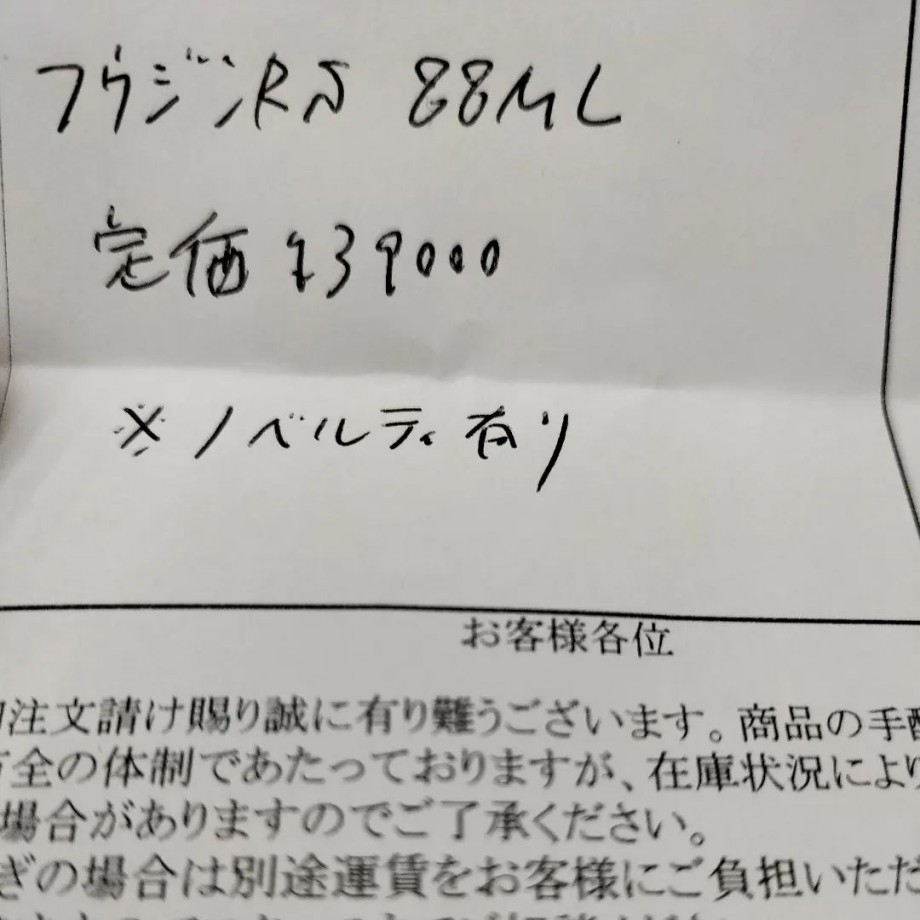 フウジンRS 88ML
定価 ¥39000
※ノベルティ有り
お客様各位
注文請け賜り誠に有り難うございます。商品の手配
万全の体制であたっておりますが、在庫状況により
場合がありますのでご了承ください。
ぎの場合は別途運賃をお客様にご負担いただ